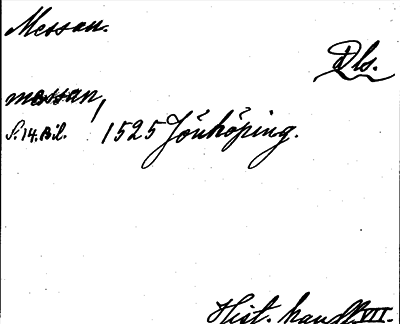 Messan.
Dls.
messan,
S. 14. Bil. 1525 Jönköping.
Hist. handl. VII.